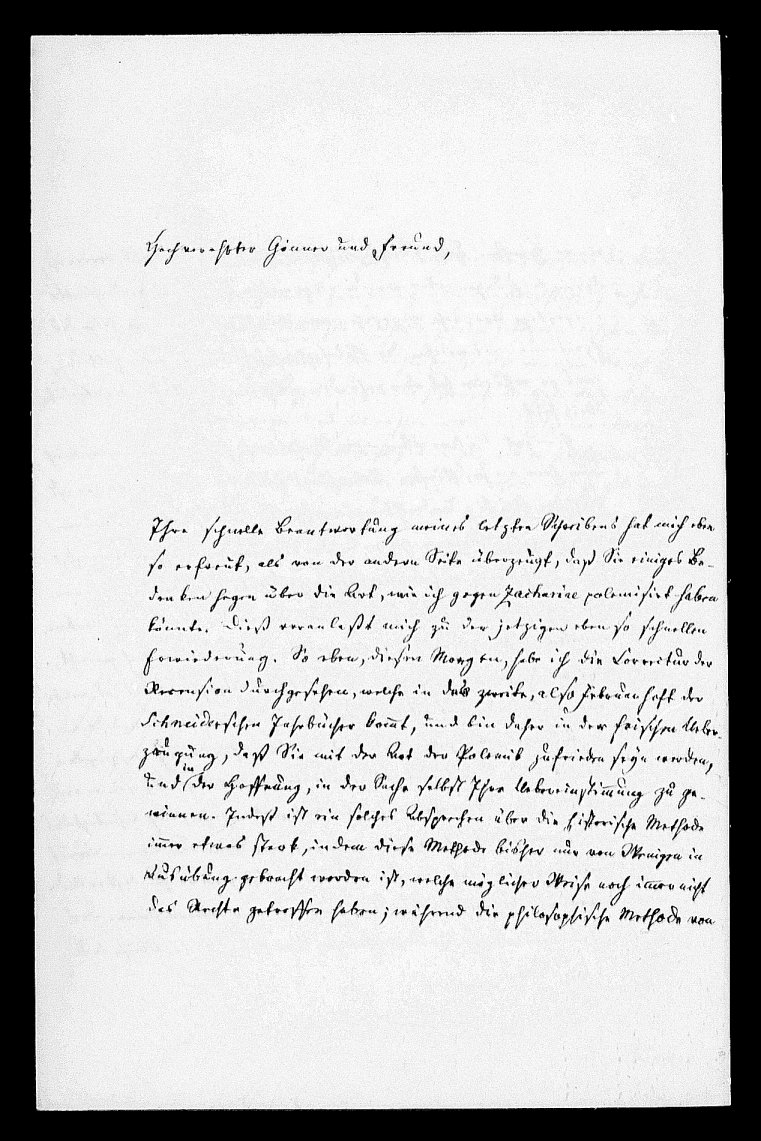 Hochverehrter Gönner und Freund,
Ihre schnelle Beantwortung meines letzten Schreibens hat mich eben
so erfreut, als von der andern Seite überzeugt, daß Sie einiges Be-
denken hegen über die Art, wie ich gegen Zachariae polemisirt haben
könnte. Dieß veranlaßt mich zu der jetzigen eben so schnellen
Erwiederung. So eben, diesen Morgen, habe ich die Correctur der
Recension durchgesehen, welche in das zweite, also Februarheft der
Schneiderschen Jahrbücher kommt, und bin daher in der frischen Ueber-
zeugung, daß Sie mit der Art der Polemik zufrieden seyn werden,
und in der Hoffnung, in der Sache selbst Ihre Uebereinstimmung zu ge-
winnen. Indeß ist ein solches Absprechen über die historische Methode
immer etwas stark, indem diese Methode bisher nur von Wenigen in
Ausübung gebracht worden ist, welche möglicher Weise noch immer nicht
das Rechte getroffen haben; während die philosophische Methode von